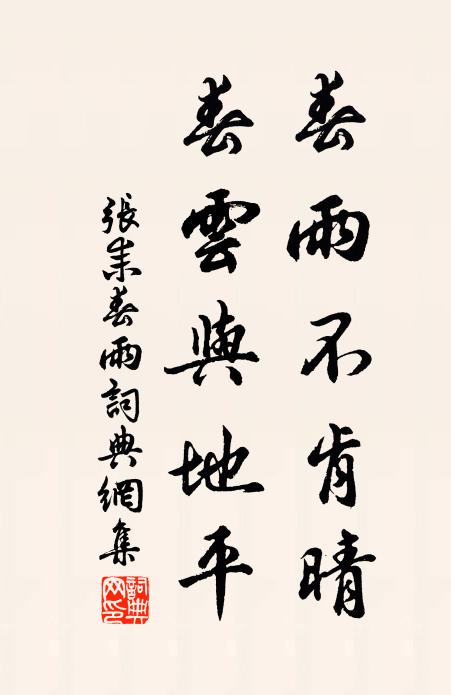 春雨不肯晴
春雲與地平
張耒春雨詞典網集
詞典網印